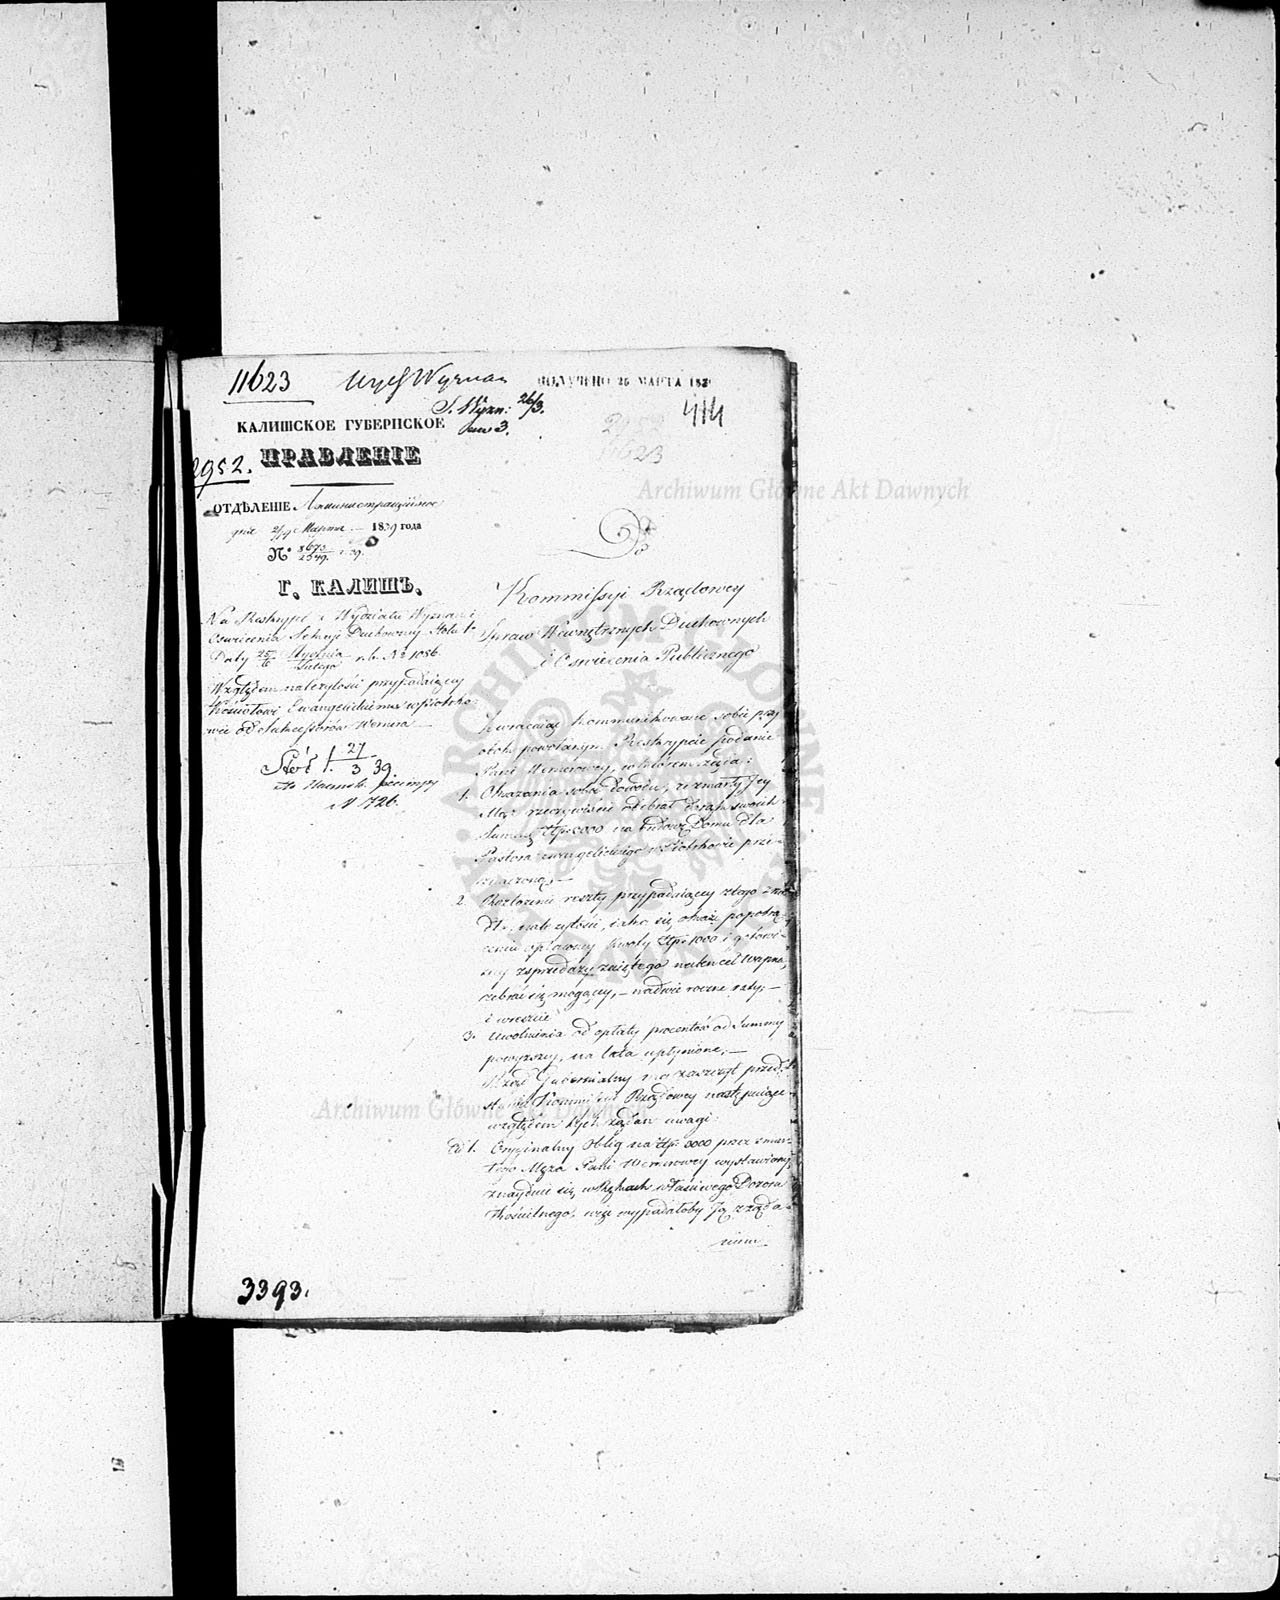 11623
Wydz Wyznań
ПОЛУЧЕНО 26 МАРТА 183
S. Wyzn: 26/3.
414
КАЛИШСКОЕ ГУБЕРНСКОЕ
2952.
ПРАВЛЕНІЕ
2952
11623
ОТДѢЛЕНІЕ Административное
дня 2/14 Марта 1839 года
№ 8673/2549.
Г. КАЛИШЪ.
Na Reskrypt z Wydziału Wyznań i
Oświecenia Sekcyi Duchowney
Daty 25/6 Stycznia/Lutego r. b. № 1086.
Względem należytości przypadaiącey
Kościołowi Ewangelickiemu w Piotrko-
wie od Sukcessorów Wernera
27
3 39
№ 726.
Kommissyi Rządowey
Spraw Wewnętrznych Duchownych
i Oświecenia Publicznego
Zwracaiąc kommunikowane sobie przy
obok powołanym Reskrypcie podanie
Pani Wernerowey, w którem żąda:
1. Okazania sobie dowodu, że zmarły Jey
Mąż rzeczywiście odebrał do rąk swoich
Summę Złp. 6000 na budowę Domu dla
Pastora ewangelickiego w Piotrkowie prze-
znaczoną;—
2. Rozłożenia reszty przypadaiącey
należytości, iaka się okaże po potrą-
ceniu kwoty Złp. 1000 i
sprzedaży zaiętego na ten cel wapna,
zebrać się mogącey,— na dwie roczne raty;—
i wreszcie
3. Uwolnienia od opłaty procentów od Summy
powyższey, za lata upłynione;—
Rząd Gubernialny ma zaszczyt przed-
stawić Kommissyi Rządowey następuiące
względem tych żądań uwagi:
ad 1. Oryginalny Oblig na Złp. 6000 przez zmar-
łego Męża Pani Wernerowey wystawiony,
znayduie się w Rękach właściwego Dozoru
Kościelnego, więc wypadałoby Ją z żąda-
niem
3393.
Archiwum Główne Akt Dawnych
Archiwum Główne Akt Dawnych
ARCHIWUM GŁÓWNE AKT DAWNYCH